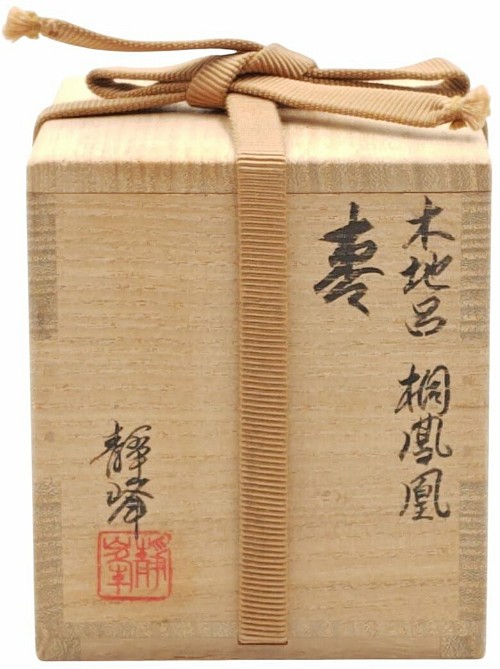 木地呂 桐鳳凰
棗
静峰
静峯